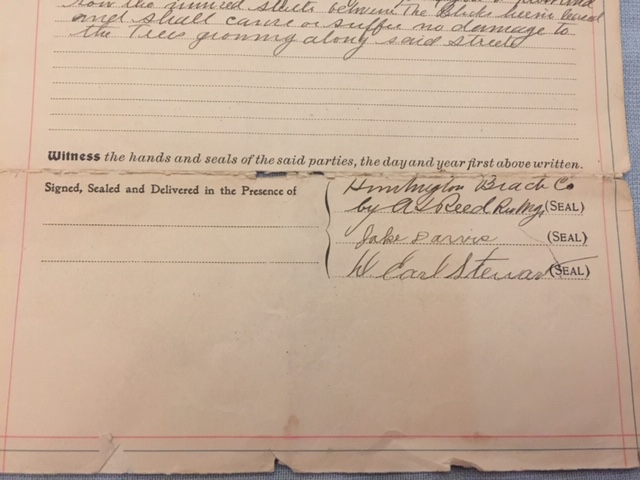 now the ... streets between The Blocks herein leased
and shall cause or suffer no damage to
the Trees growing along said Streets
Witness the hands and seals of the said parties, the day and year first above written.
Signed, Sealed and Delivered in the Presence of
Huntington Beach Co
by A L Reed Res Mgr. (SEAL)
Jake Jarvis (SEAL)
W. Earl Stewart (SEAL)